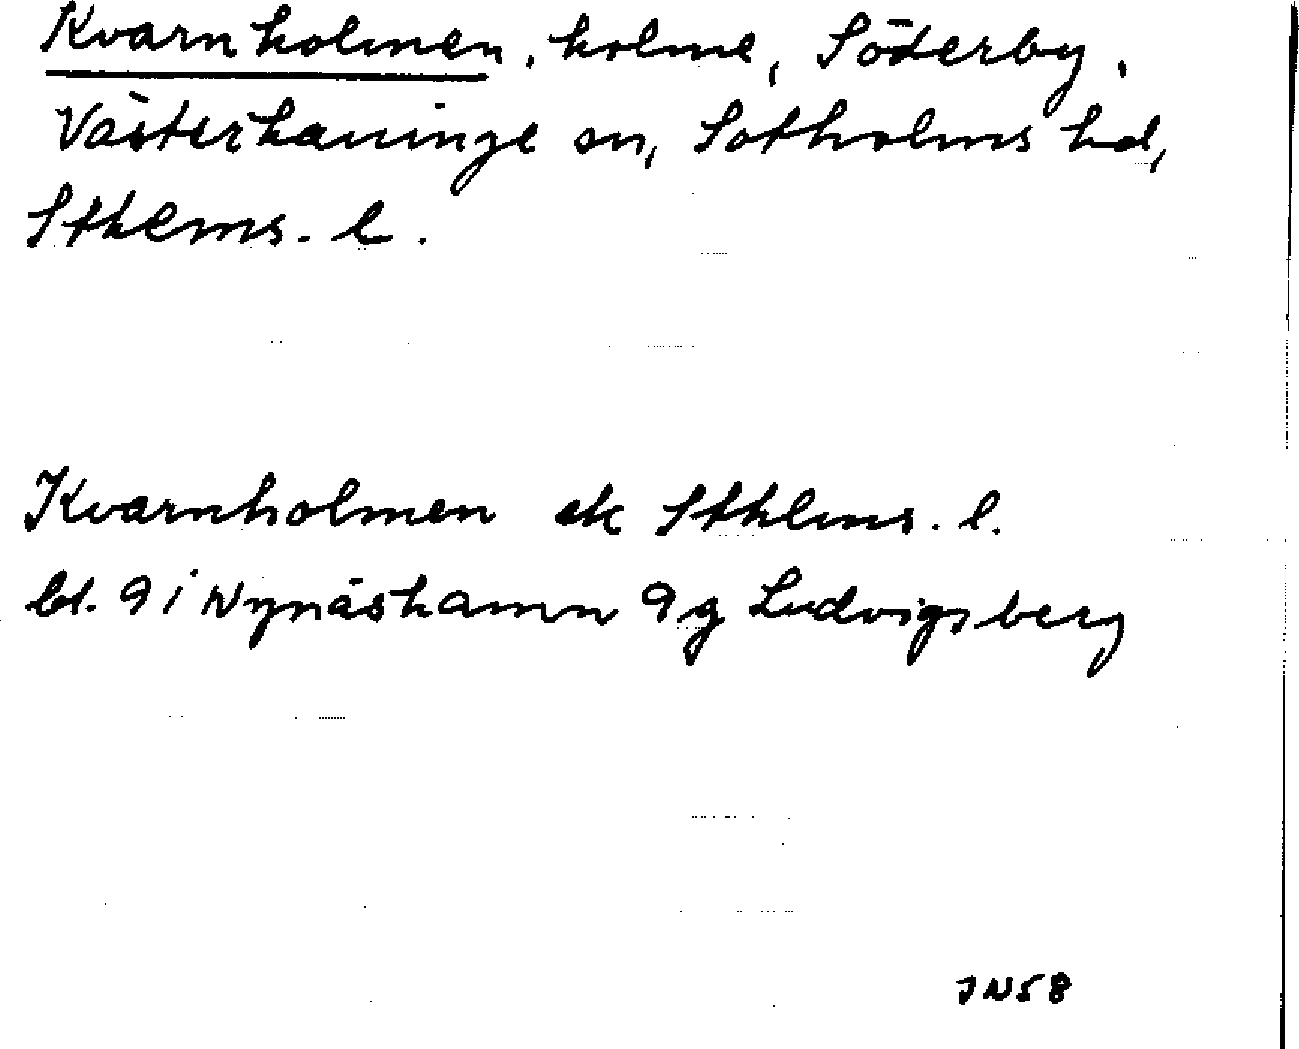 Kvarnholmen, holme, Söderby,
Västerhaninge sn, Sotholms hd,
Sthlms. l.
Kvarnholmen ek Sthlms. l.
bl. 9 i Nynäshamn 9g Ludvigsberg
JN58